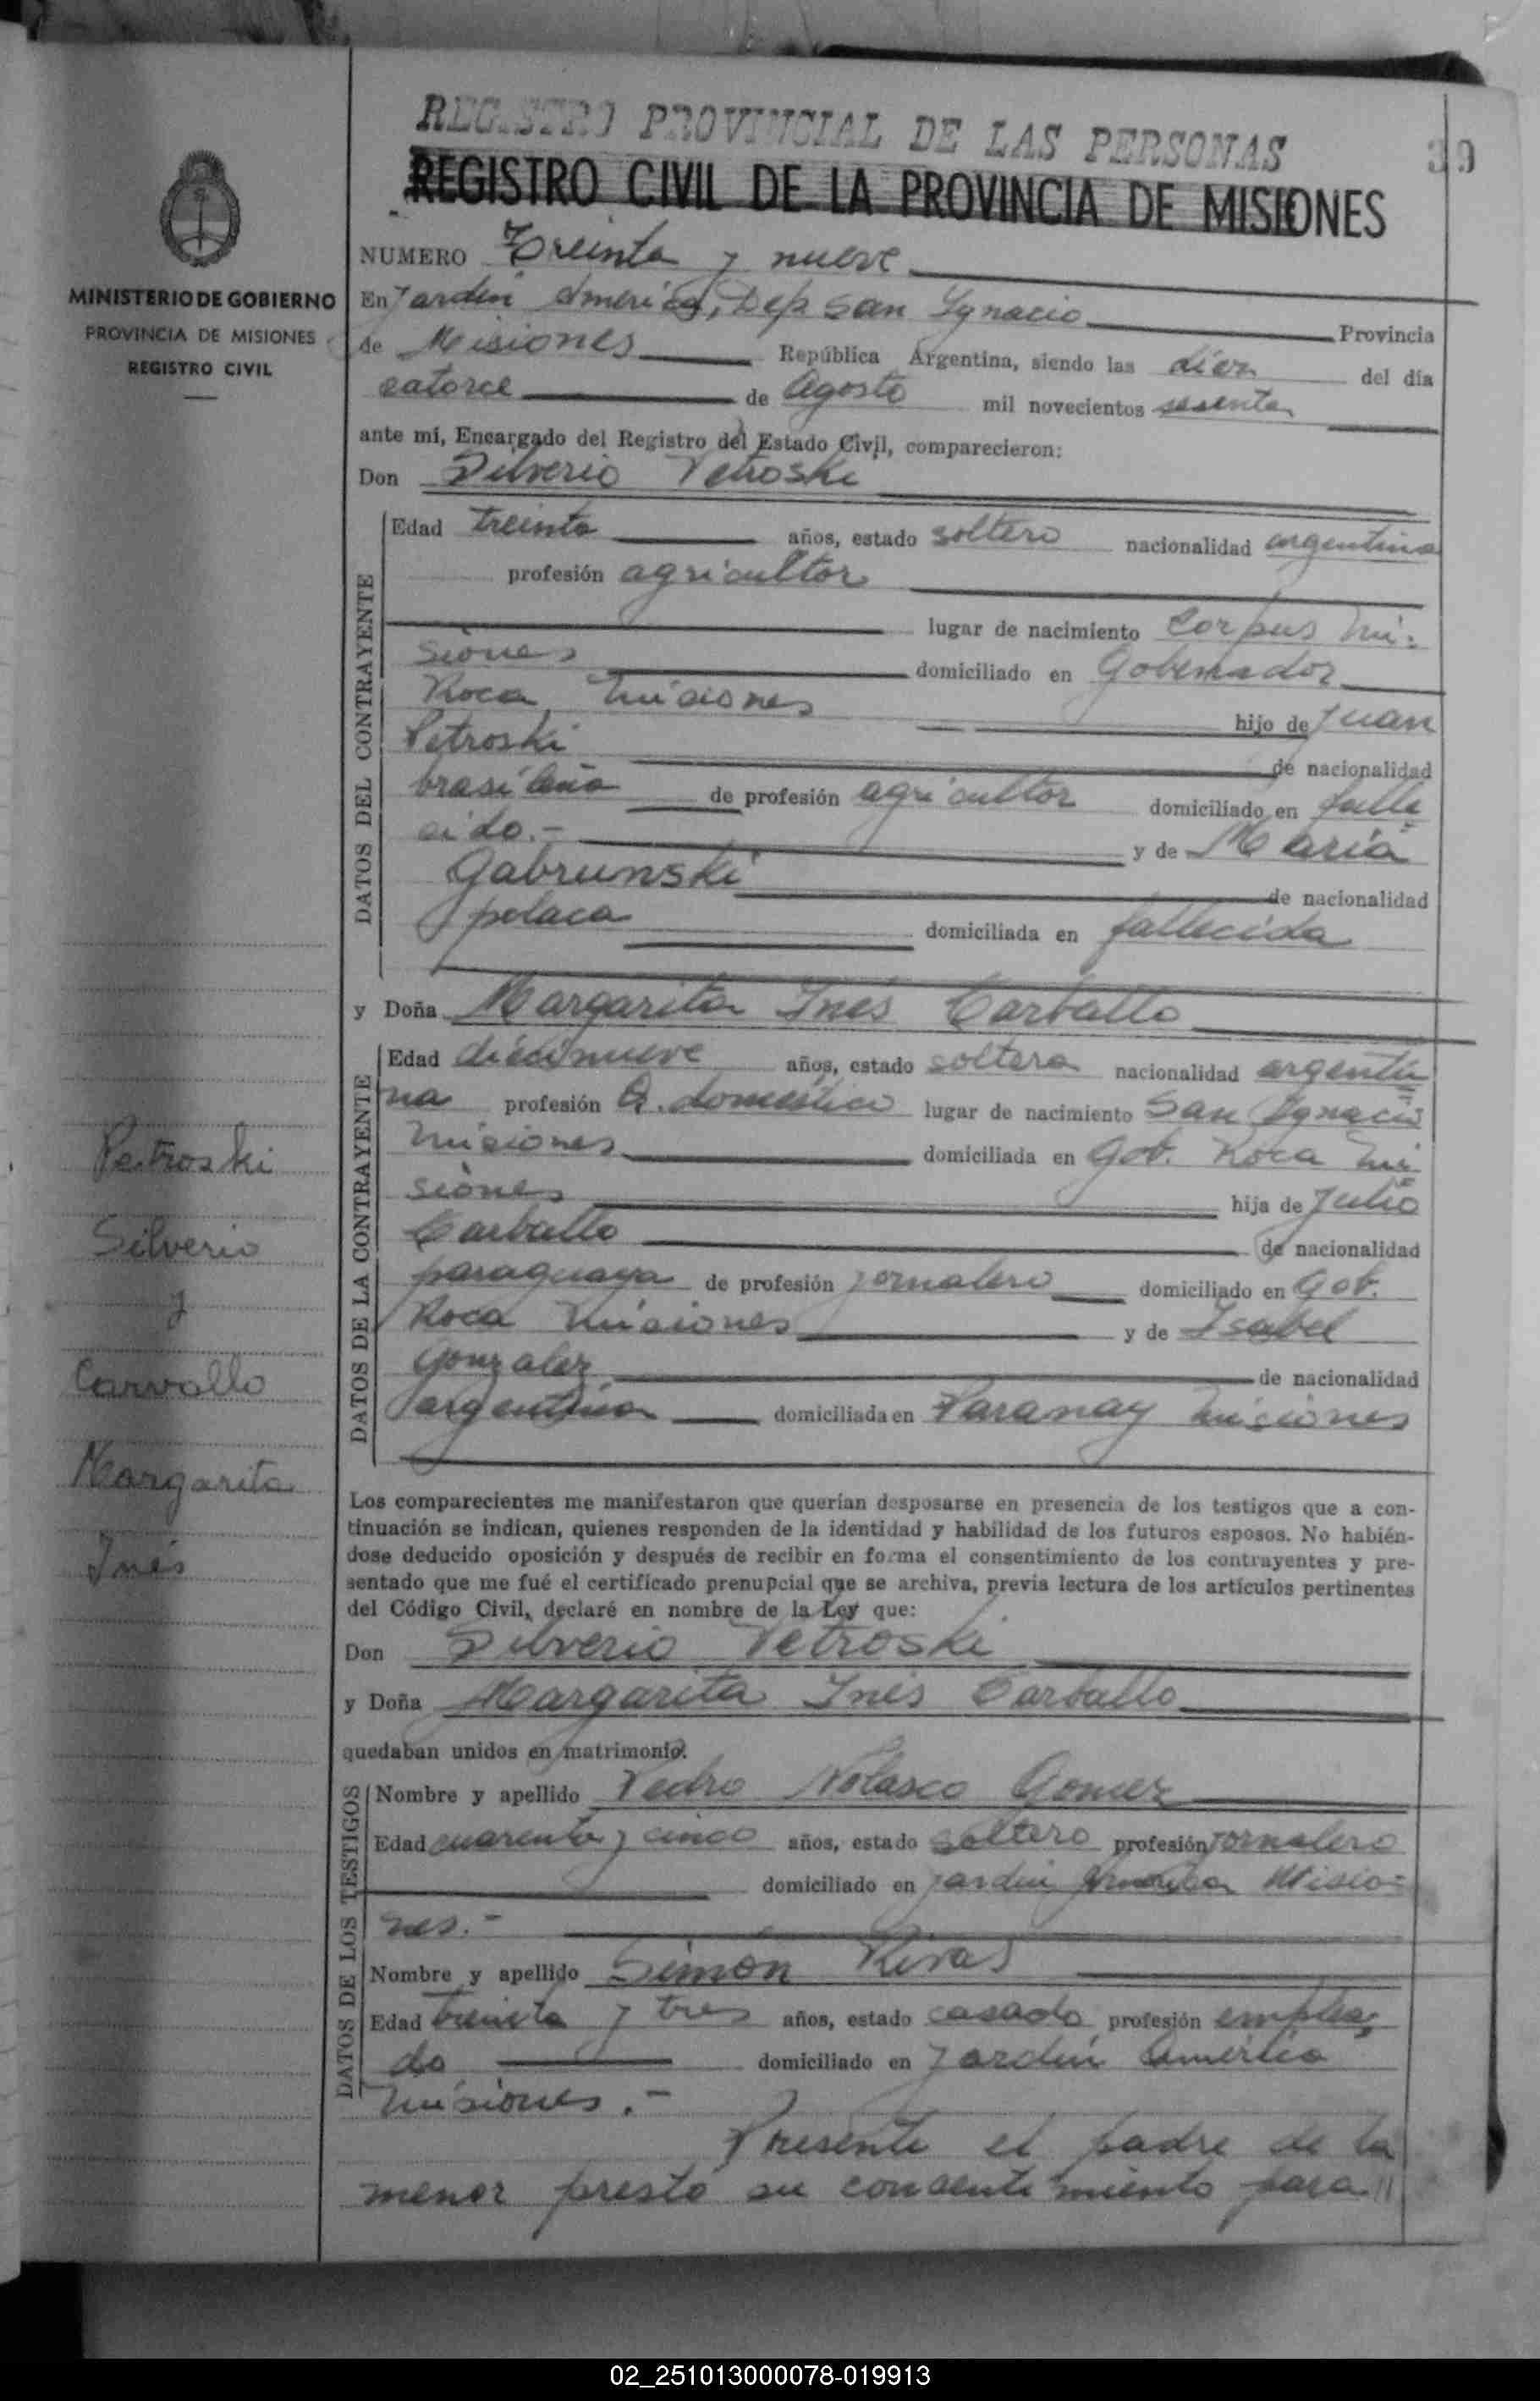 REGISTRO PROVINCIAL DE LAS PERSONAS
39
REGISTRO CIVIL DE LA PROVINCIA DE MISIONES
MINISTERIO DE GOBIERNO
PROVINCIA DE MISIONES
REGISTRO CIVIL
Petroski
Silverio
y
Carvallo
Margarita
Inés
NUMERO Treinta y nueve
En Jardin America, Dep San Ygnacio Provincia
de Misiones República Argentina, siendo las diez del día
catorce de Agosto mil novecientos sesenta
ante mí, Encargado del Registro del Estado Civil, comparecieron:
Don Silverio Petroski
DATOS DEL CONTRAYENTE
Edad treinta años, estado soltero nacionalidad argentina
profesión agricultor
lugar de nacimiento Corpus Mi-
siones domiciliado en Gobernador
Roca, Misiones hijo de Juan
Petroski de nacionalidad
brasileña de profesión agricultor domiciliado en falle
cido.- y de María
Gabrunski de nacionalidad
polaca domiciliada en fallecida
y Doña Margarita Inés Carballo
DATOS DE LA CONTRAYENTE
Edad diecinueve años, estado soltera nacionalidad argenti
na profesión Q. domestico lugar de nacimiento San Ygnacio
Misiones domiciliada en Gob. Roca Mi
siones hija de Julio
Carballo de nacionalidad
paraguaya de profesión jornalero domiciliado en Gob.
Roca Misiones y de Isabel
Gonzalez de nacionalidad
argentina domiciliada en Paranay Misiones
Los comparecientes me manifestaron que querían desposarse en presencia de los testigos que a con-
tinuación se indican, quienes responden de la identidad y habilidad de los futuros esposos. No habién-
dose deducido oposición y después de recibir en forma el consentimiento de los contrayentes y pre-
sentado que me fué el certificado prenupcial que se archiva, previa lectura de los artículos pertinentes
del Código Civil, declaré en nombre de la Ley que:
Don Silverio Petroski
y Doña Margarita Inés Carballo
quedaban unidos en matrimonio.
DATOS DE LOS TESTIGOS
Nombre y apellido Pedro Nolasco Gomez
Edad cuarenta y cinco años, estado soltero profesión jornalero
domiciliado en Jardin America Misio-
nes.-
Nombre y apellido Simón Rivas
Edad treinta y tres años, estado casado profesión emplea
do domiciliado en Jardin América
Misiones.-
Presente el padre de la
menor prestó su consentimiento para //
02_251013000078-019913